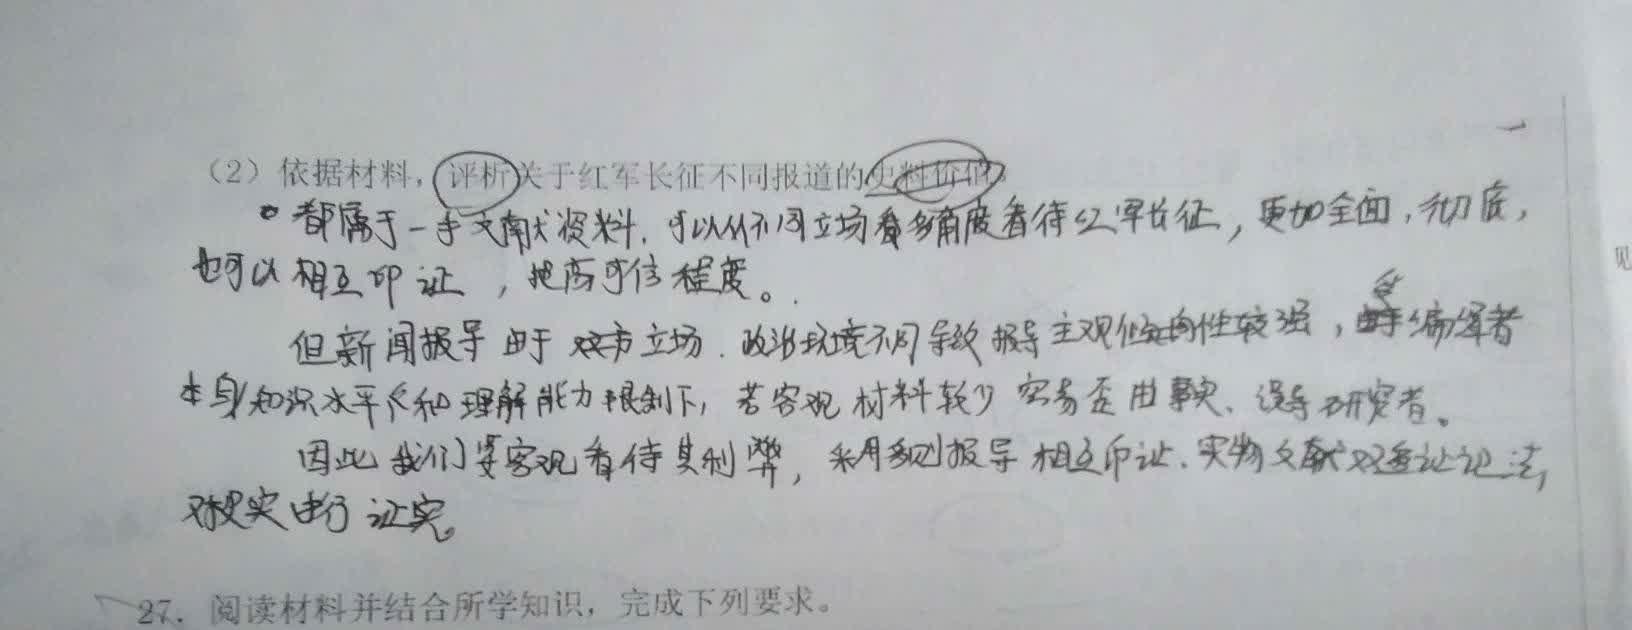 （2）依据材料，评析关于红军长征不同报道的史料价值
都属于一手文献资料，可以从不同立场看多角度看待红军长征，更加全面，彻底，
也可以相互印证，提高可信程度。
但新闻报导由于双方立场、政治环境不同导致报导主观倾向性较强，编辑者
本身知识水平和理解能力限制下，若客观材料较少容易歪曲事实、误导研究者。
因此我们要客观看待其利弊，采用多则报导相互印证、实物文献双重证据法，
对史实进行证实。
27．阅读材料并结合所学知识，完成下列要求。
见